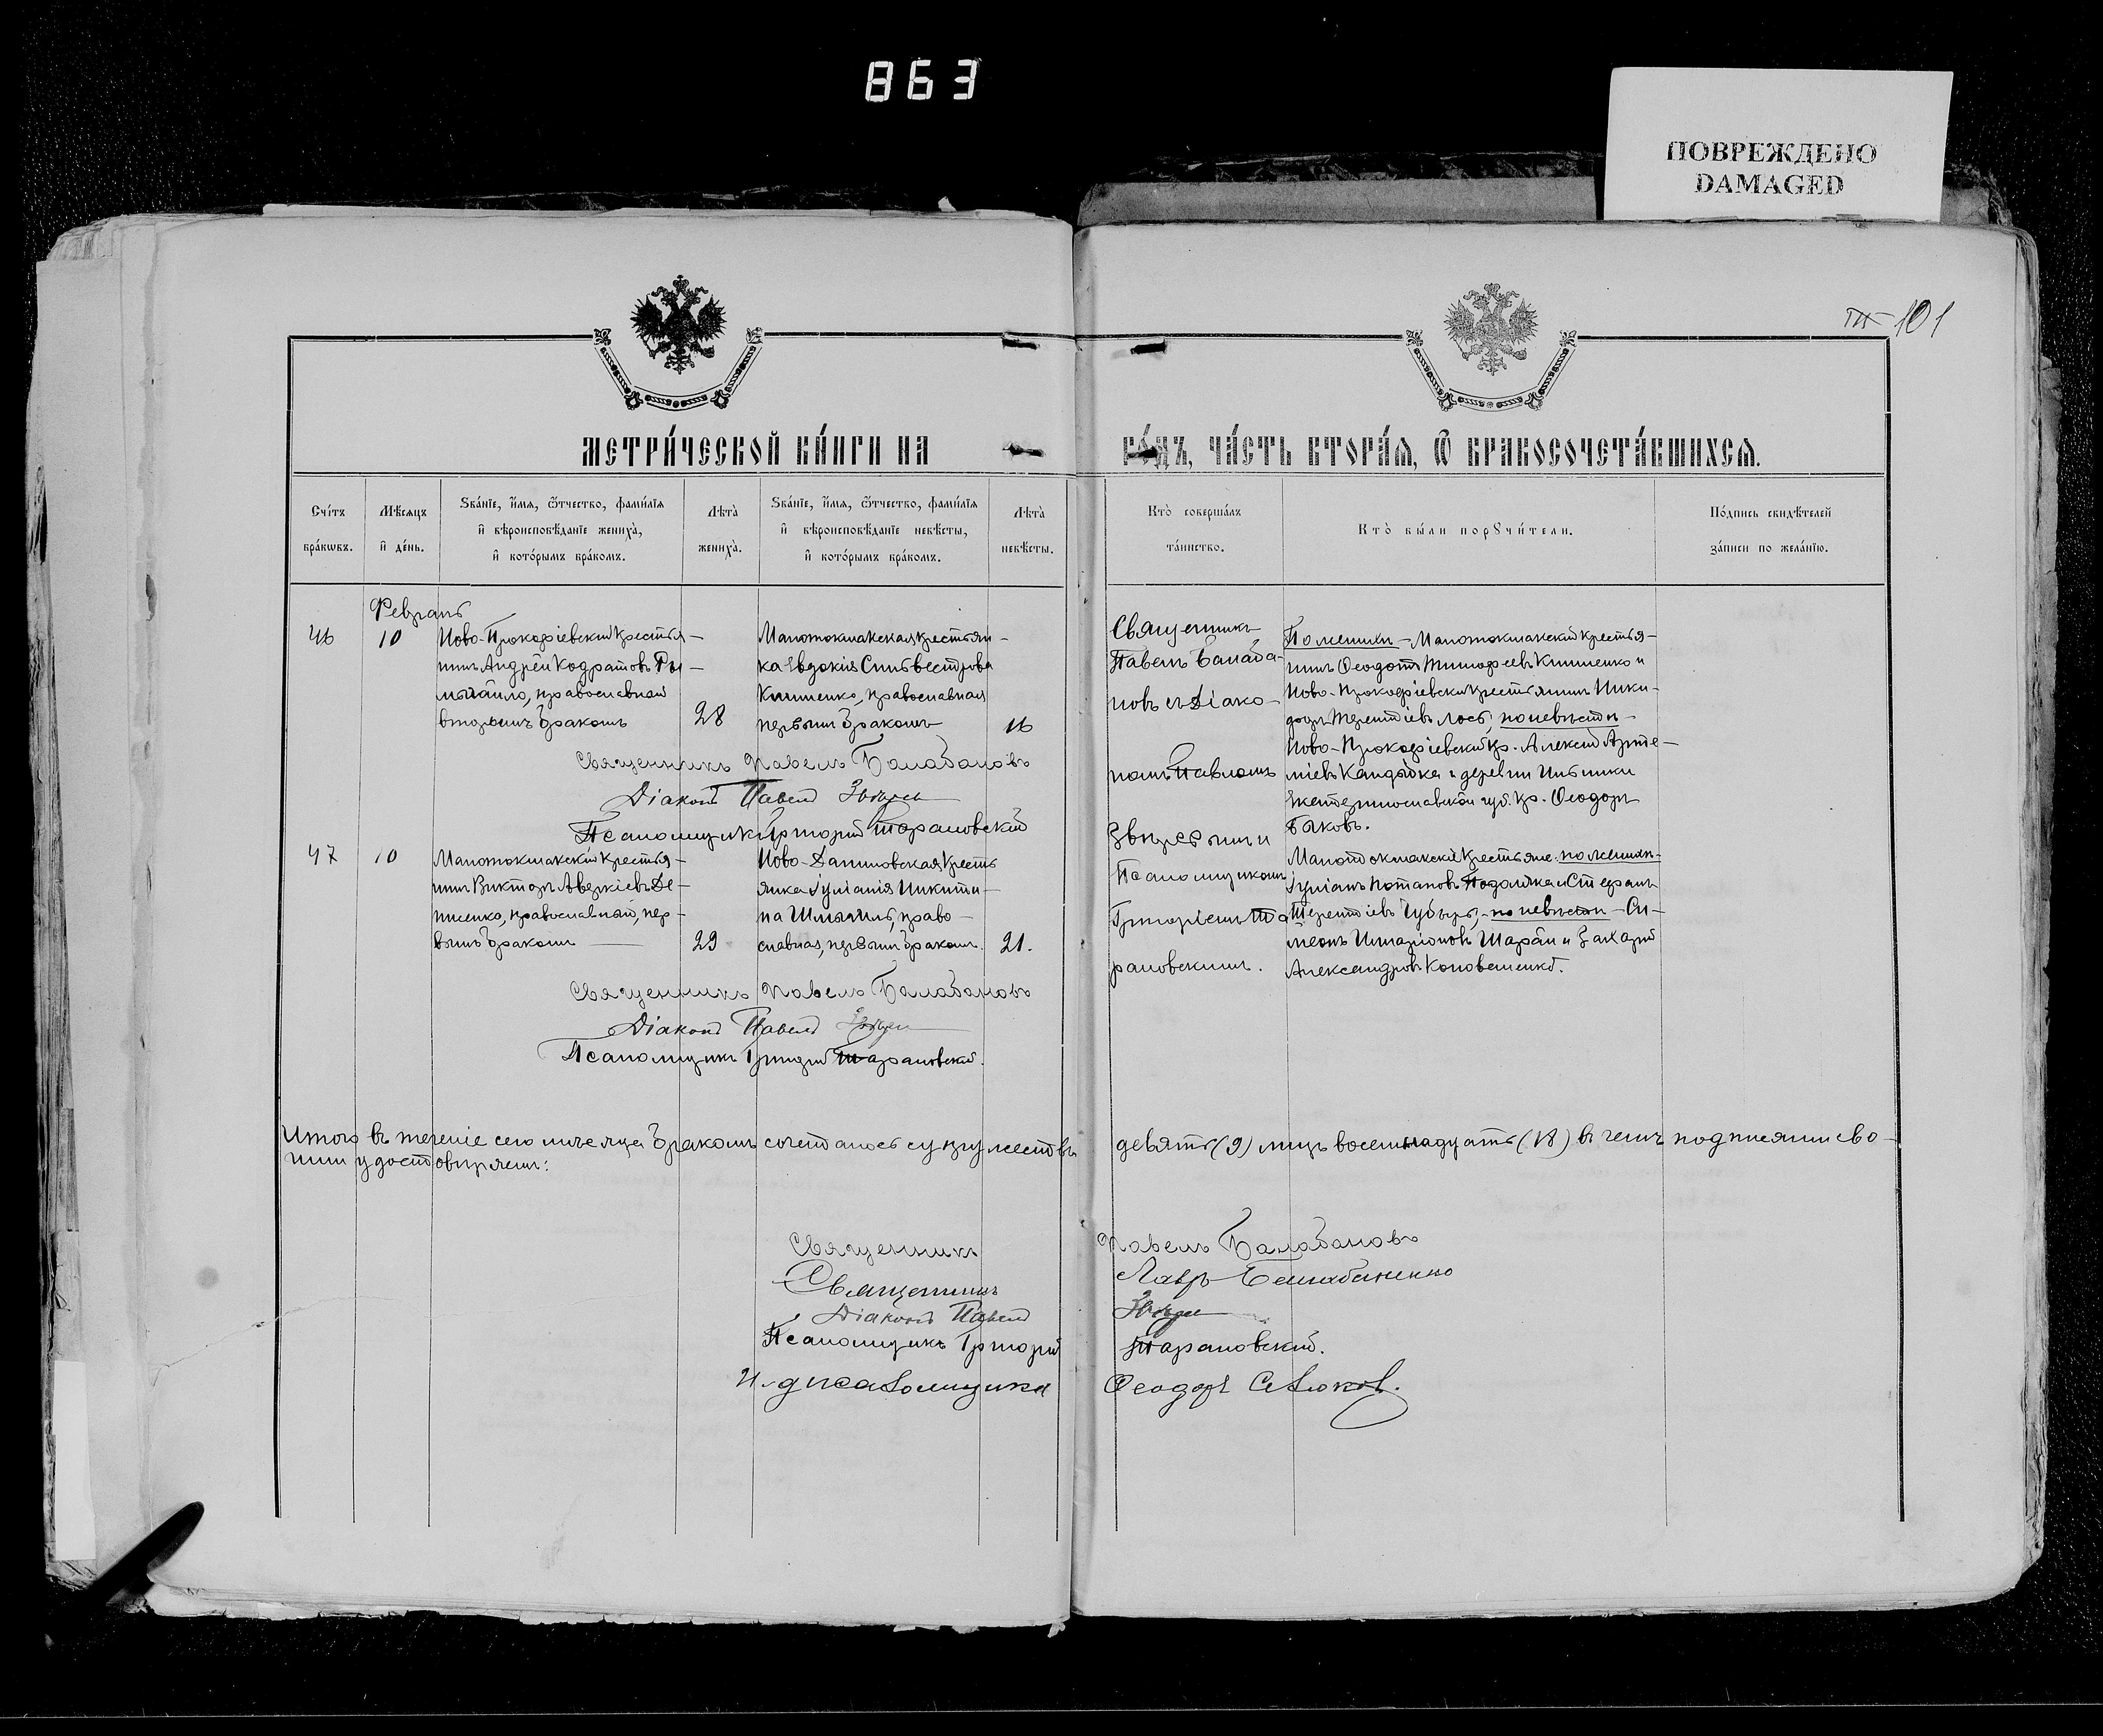 863
ПОВРЕЖДЕНО
DAMAGED
101
МЕТРИ́ЧЕСКОЙ КНИ́ГИ НА
ГО́ДЪ, ЧА́СТЬ ВТОРА́Я, Ѿ БРАКОСОЧЕТА́ВШИХСЯ.
Сче́тъ бра́кѡвъ.
Мѣ́сяцъ и҆ де́нь.
Ѕва́нїе, и҆́мя, ѻ҆́тчество, фами́лїя
и҆ вѣроисповѣ́данїе женихà,
и҆ кото́рымъ бра́комъ.
Лѣ́та женихà.
Ѕва́нїе, и҆́мя, ѻ҆́тчество, фами́лїя
и҆ вѣроисповѣ́данїе невѣ́сты,
и҆ кото́рымъ бра́комъ.
Лѣ́та невѣ́сты.
Кто̀ соверша́лъ
та́инство.
Кто̀ бы́ли порꙋчи́тели.
По́дпись свидѣ́телей
за́писи по жела́нїю.
Февраль
46
10
Ново-Прокофіевскій крестья-
нинъ Андрей Кодратовъ Ры-
мыйло, православный
вторымъ бракомъ
28
Малотокмакская крестьян-
ка Евдокія Сильвестрова
Клименко, православная
первымъ бракомъ
16
Священникъ Павелъ Балабановъ
Діаконъ Павелъ Звѣревъ
Псаломщикъ Григорій Тарановскій
Священникъ
Павелъ Балаба-
новъ съ Діако-
номъ Павломъ
Звѣревымъ и
Псаломщикомъ
Григоріемъ Та-
рановскимъ.
По женихѣ - Малотокмакскій крестья-
нинъ Ѳеодотъ Тимофеевъ Клименко и
Ново-Прокофіевскій крестьянинъ Ники-
форъ Терентіевъ Лось, по невѣстѣ -
Ново-Прокофіевскій кр. Алексій Арте-
міевъ Кандыбка и деревни Ильинки
Екатеринославской губ. кр. Ѳеодоръ
Быковъ.
47
10
Малотокмакскій крестья-
нинъ Викторъ Аверкіевъ Де-
нисенко, православный, пер-
вымъ бракомъ
29
Ново-Даниловская кресть
янка Іуліанія Никити-
на Шмыгль, право-
славная, первымъ бракомъ.
21.
Малотокмакскіе крестьяне. по женихѣ-
Іуліанъ Потаповъ Подоляка и Стефанъ
Терентіевъ Губырь, - по невѣстѣ - Си-
меонъ Иларіоновъ Шарай и Захарій
Александровъ Коноваленко.
Священникъ Павелъ Балабановъ
Діаконъ Павелъ Звѣревъ
Псаломщикъ Григорій Тарановскій.
Итого въ теченіе сего месяца бракомъ сочеталось супружествъ девять (9) лицъ восемнадцать (18) въ чемъ подписями сво-
ими удостовѣряемъ:
Священникъ Павелъ Балабановъ
Священникъ Лавръ
Діаконъ Павелъ Звѣревъ
Псаломщикъ Григорій Тарановскій.
И. д. псаломщика Ѳеодоръ